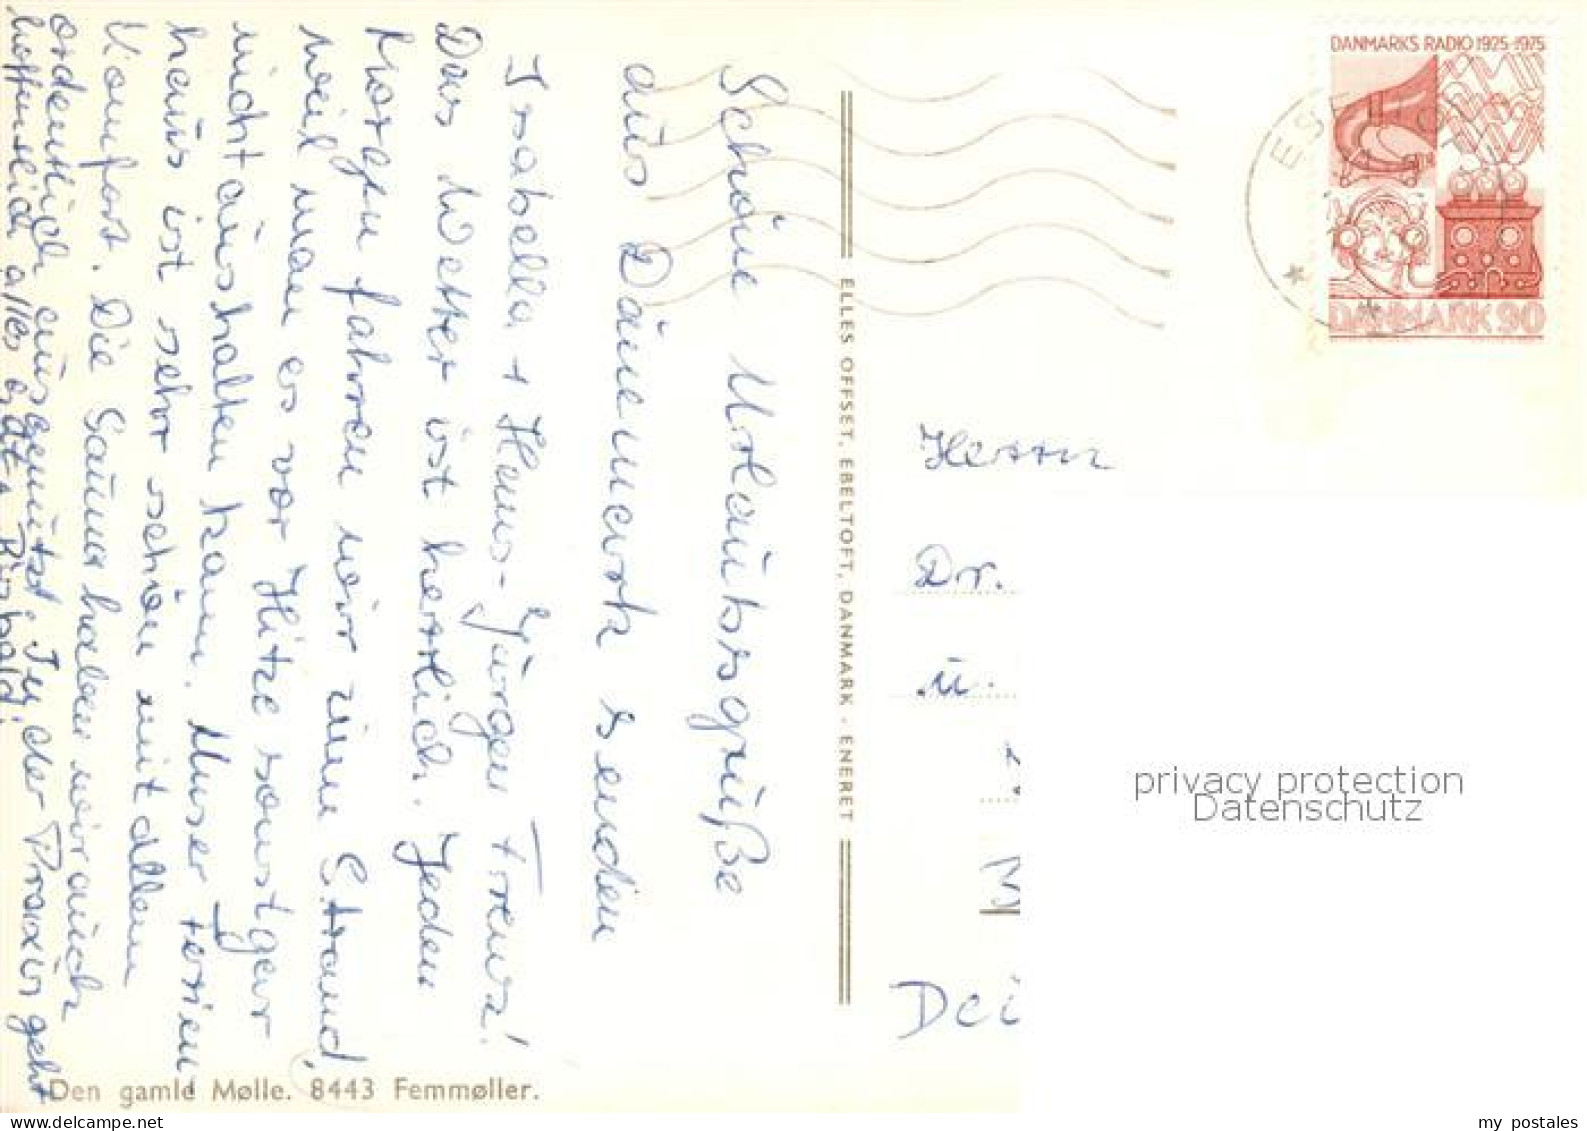 Schöne Urlaubsgrüße
aus Dänemark senden
Isabella + Hans-Jürgen Frens!
Das Wetter ist herrlich. Jeden
Morgen fahren wir zum Strand,
weil man es vor Hitze sonst gar
nicht aushalten kann. Unser Ferien-
haus ist sehr schön mit allem
Komfort. Die Sauna haben wir auch
ordentlich ausgenutzt. In der Praxis geht
hoffentlich alles gut. Bis bald!
Den gamle Mølle. 8443 Femmøller.
ELLES OFFSET, EBELTOFT, DANMARK - ENERET
DANMARKS RADIO 1925-1975
DANMARK 90
Herrn
Dr.
u.
privacy protection
Datenschutz
my postales